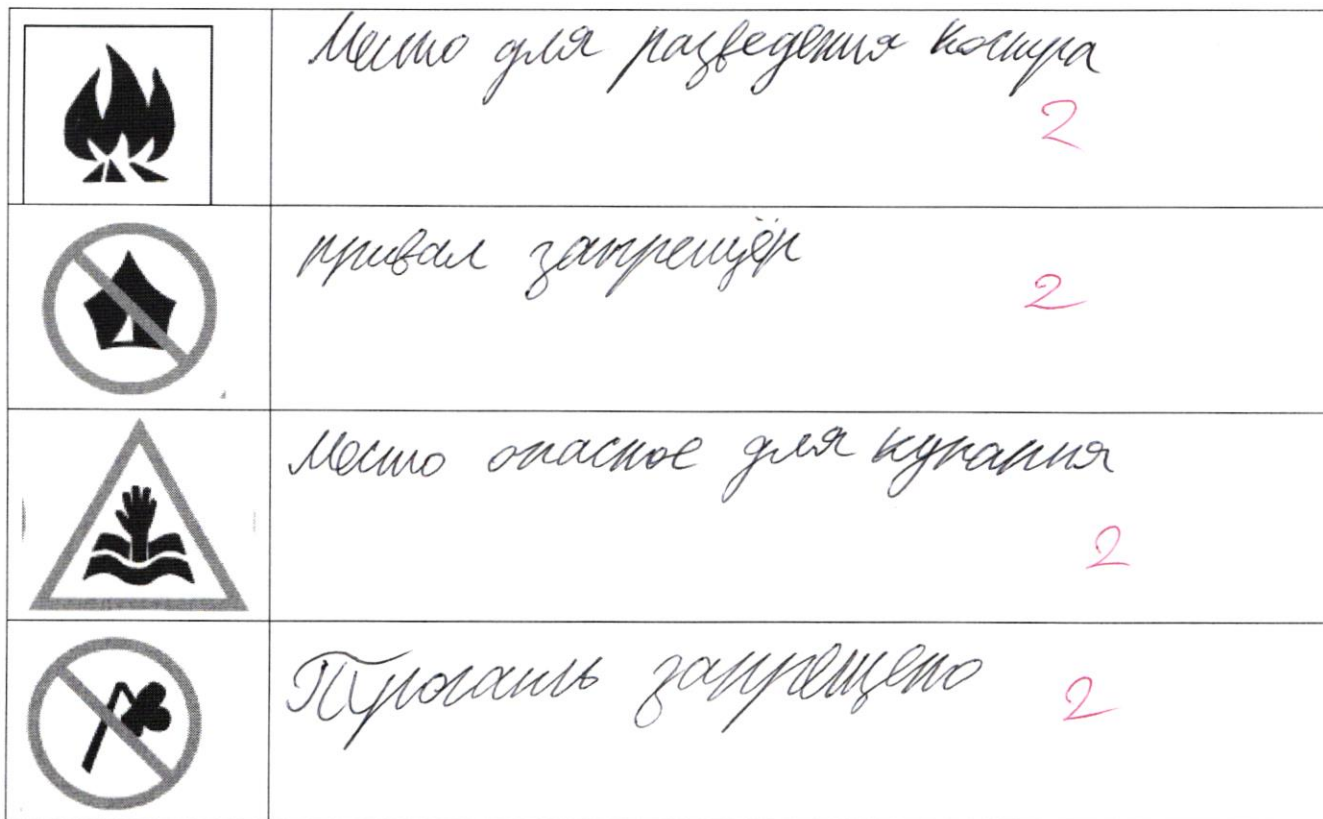 Место для разведения костра
2
привал запрещён
2
Место опасное для купания
2
Трогать запрещено 2